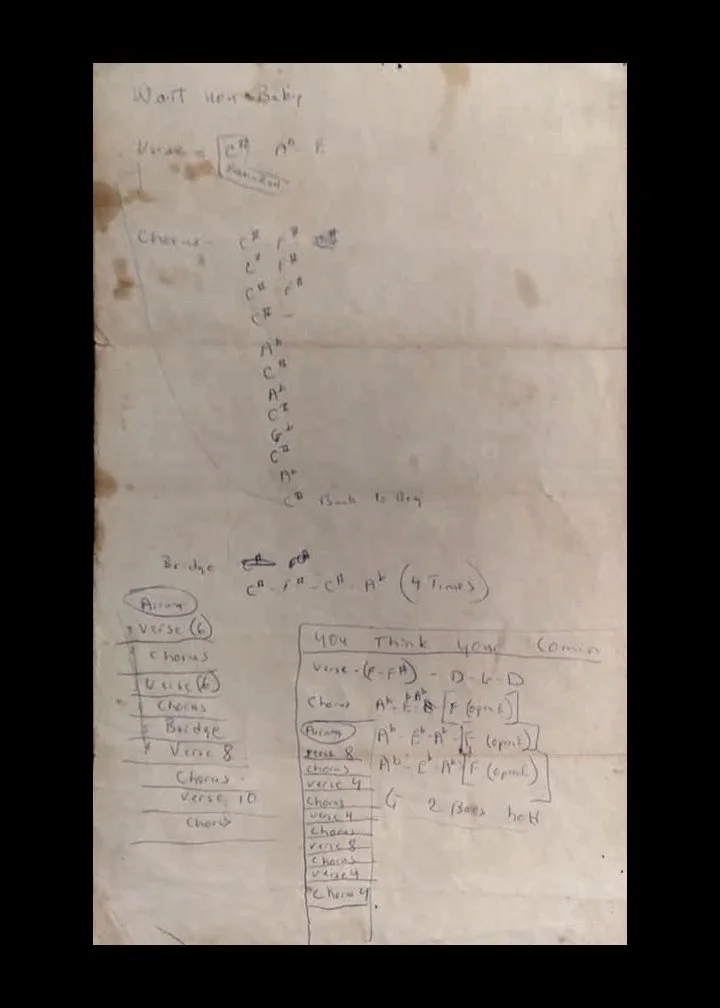 Want you Baby
Verse = C# Ab E
Chorus - C# F#
C# F#
C# F#
C# -
Ab
C#
Ab
C#
Gb
C#
Ab
C# Back to Beg
Bridge
C# - F# - C# - Ab (4 Times)
Arrang
Verse (6)
Chorus
Verse (6)
Chorus
Bridge
Verse 8
Chorus
Verse 10
Chorus
You Think Your Comin
Verse - (F - F#) - D - G - D
Chorus Ab - Eb Ab - [F (opnt)]
Ab - Eb - Ab - [F (opnt)]
Ab - Eb - Ab - [F (opnt)]
G 2 Bars hold
Arrang
verse 8
chorus
verse 4
Chorus
verse 4
Chorus
verse 8
Chorus
verse 4
Chorus 4